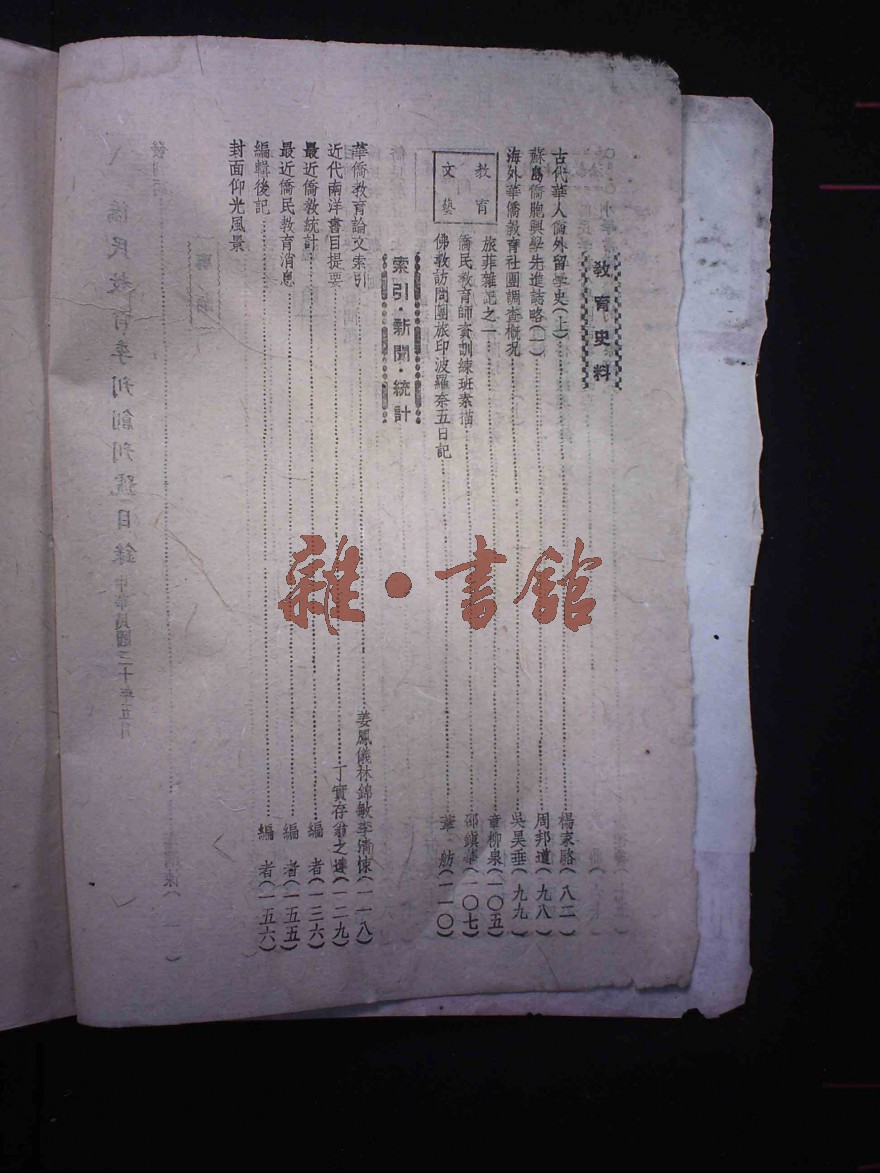 教育史料
古代華人僑外留學史(上)楊家駱(八二)
蘇島僑胞興學先進誌略(一)周邦道(九八)
海外華僑教育社團調查概況 吳昊垂(九九)
教育文藝
旅菲雜記之一 章柳泉(一〇五)
僑民教育師資訓練班素描 邵鎮華(一〇七)
佛教訪問團旅印波羅奈五日記 葦舫(一一〇)
索引·新聞·統計
華僑教育論文索引 姜鳳儀林錦敏李 (一一八)
近代南洋書目提要 丁實存翁之 (一二九)
最近僑教統計 編者(一三六)
最近僑民教育消息 編者(一五五)
編輯後記 編者(一五六)
封面仰光風景
雜·書館
僑民教育季刊創刊號目錄 中華民國三十年五月